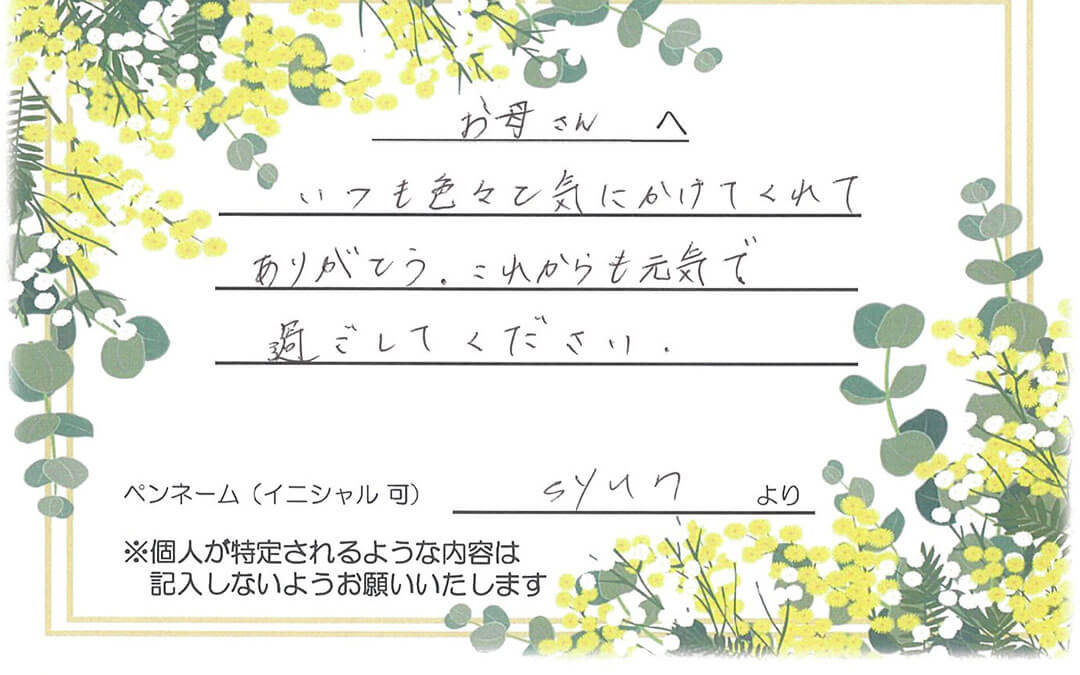 お母さん へ
いつも色々と気にかけてくれて
ありがとう。これからも元気で
過ごしてください。
ペンネーム（イニシャル 可） syun より
※個人が特定されるような内容は
記入しないようお願いいたします